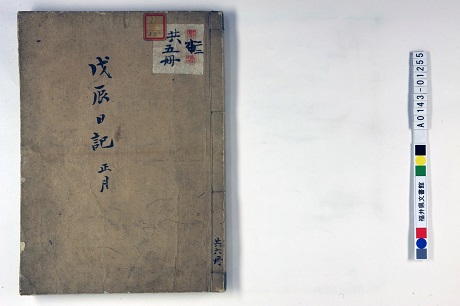 戊辰日記 正月
共五冊
共六冊
A0143-01255
福井県文書館